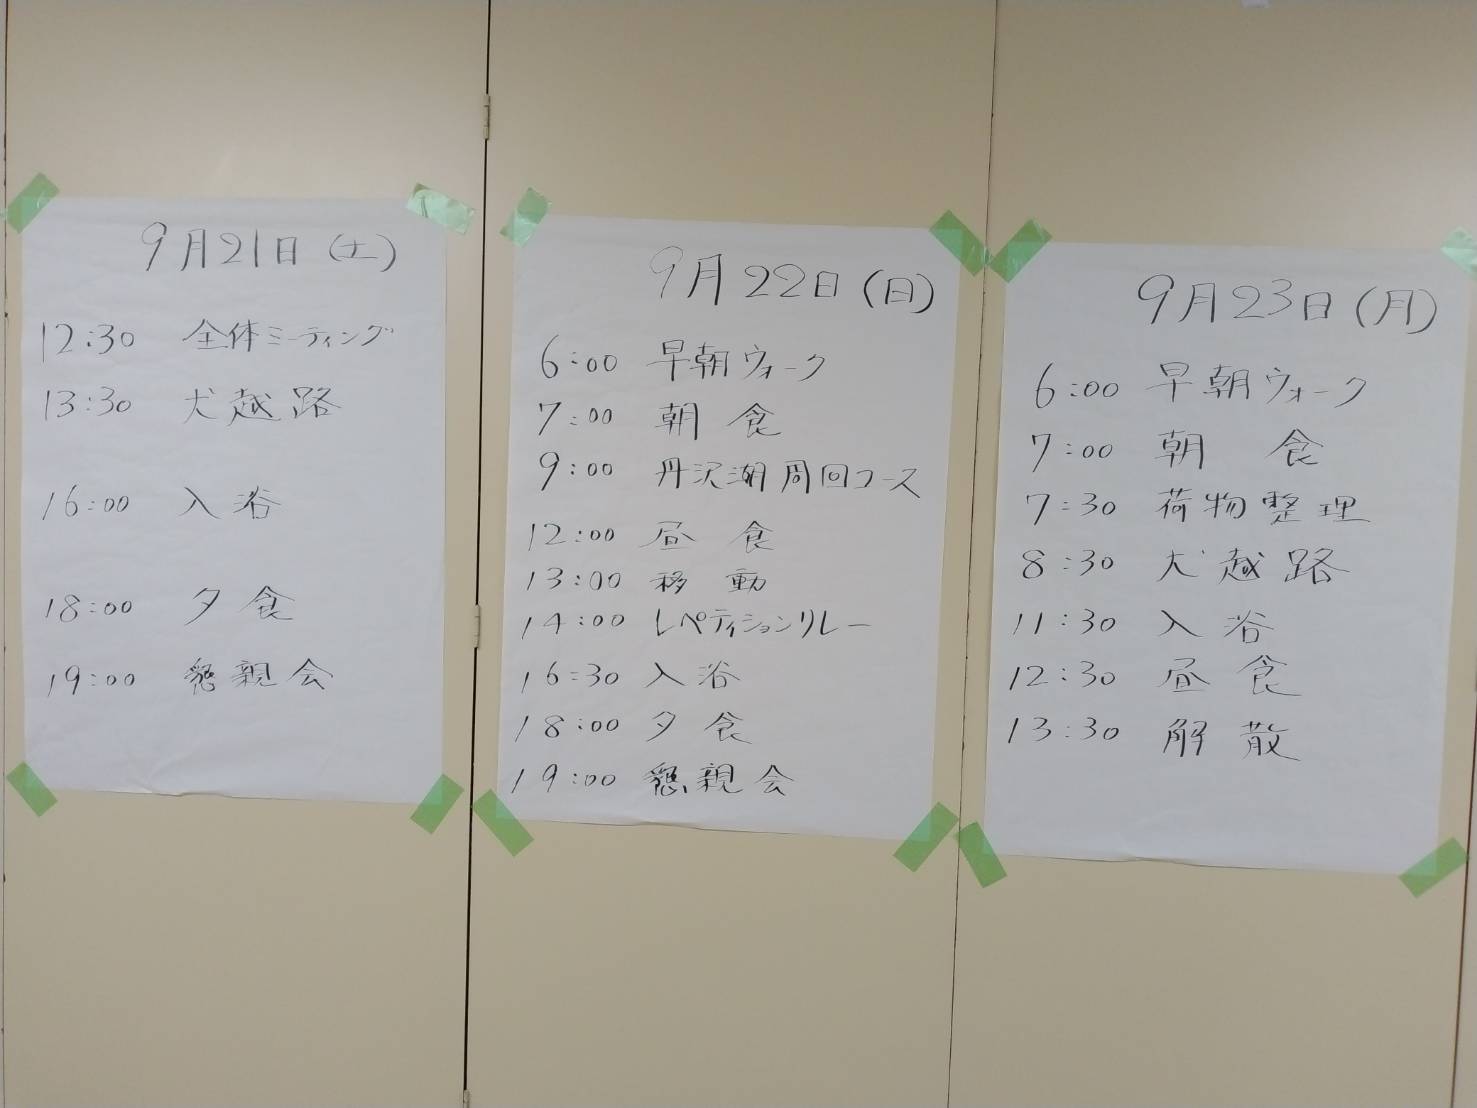 9月21日(土)
12:30 全体ミーティング
13:30 犬越路
16:00 入浴
18:00 夕食
19:00 懇親会
9月22日(日)
6:00 早朝ウォーク
7:00 朝食
9:00 丹沢湖周回コース
12:00 昼食
13:00 移動
14:00 レペティションリレー
16:30 入浴
18:00 夕食
19:00 懇親会
9月23日(月)
6:00 早朝ウォーク
7:00 朝食
7:30 荷物整理
8:30 犬越路
11:30 入浴
12:30 昼食
13:30 解散